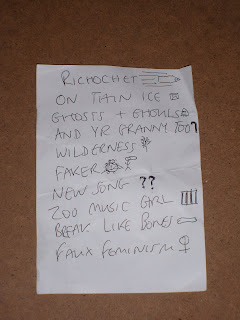 RICHOCHET
ON THIN ICE
GHOSTS + GHOULS
AND YR GRANNY TOO?
WILDERNESS
FAKER
NEW SONG ??
ZOO MUSIC GIRL
BREAK LIKE BONES
FAUX FEMINISM